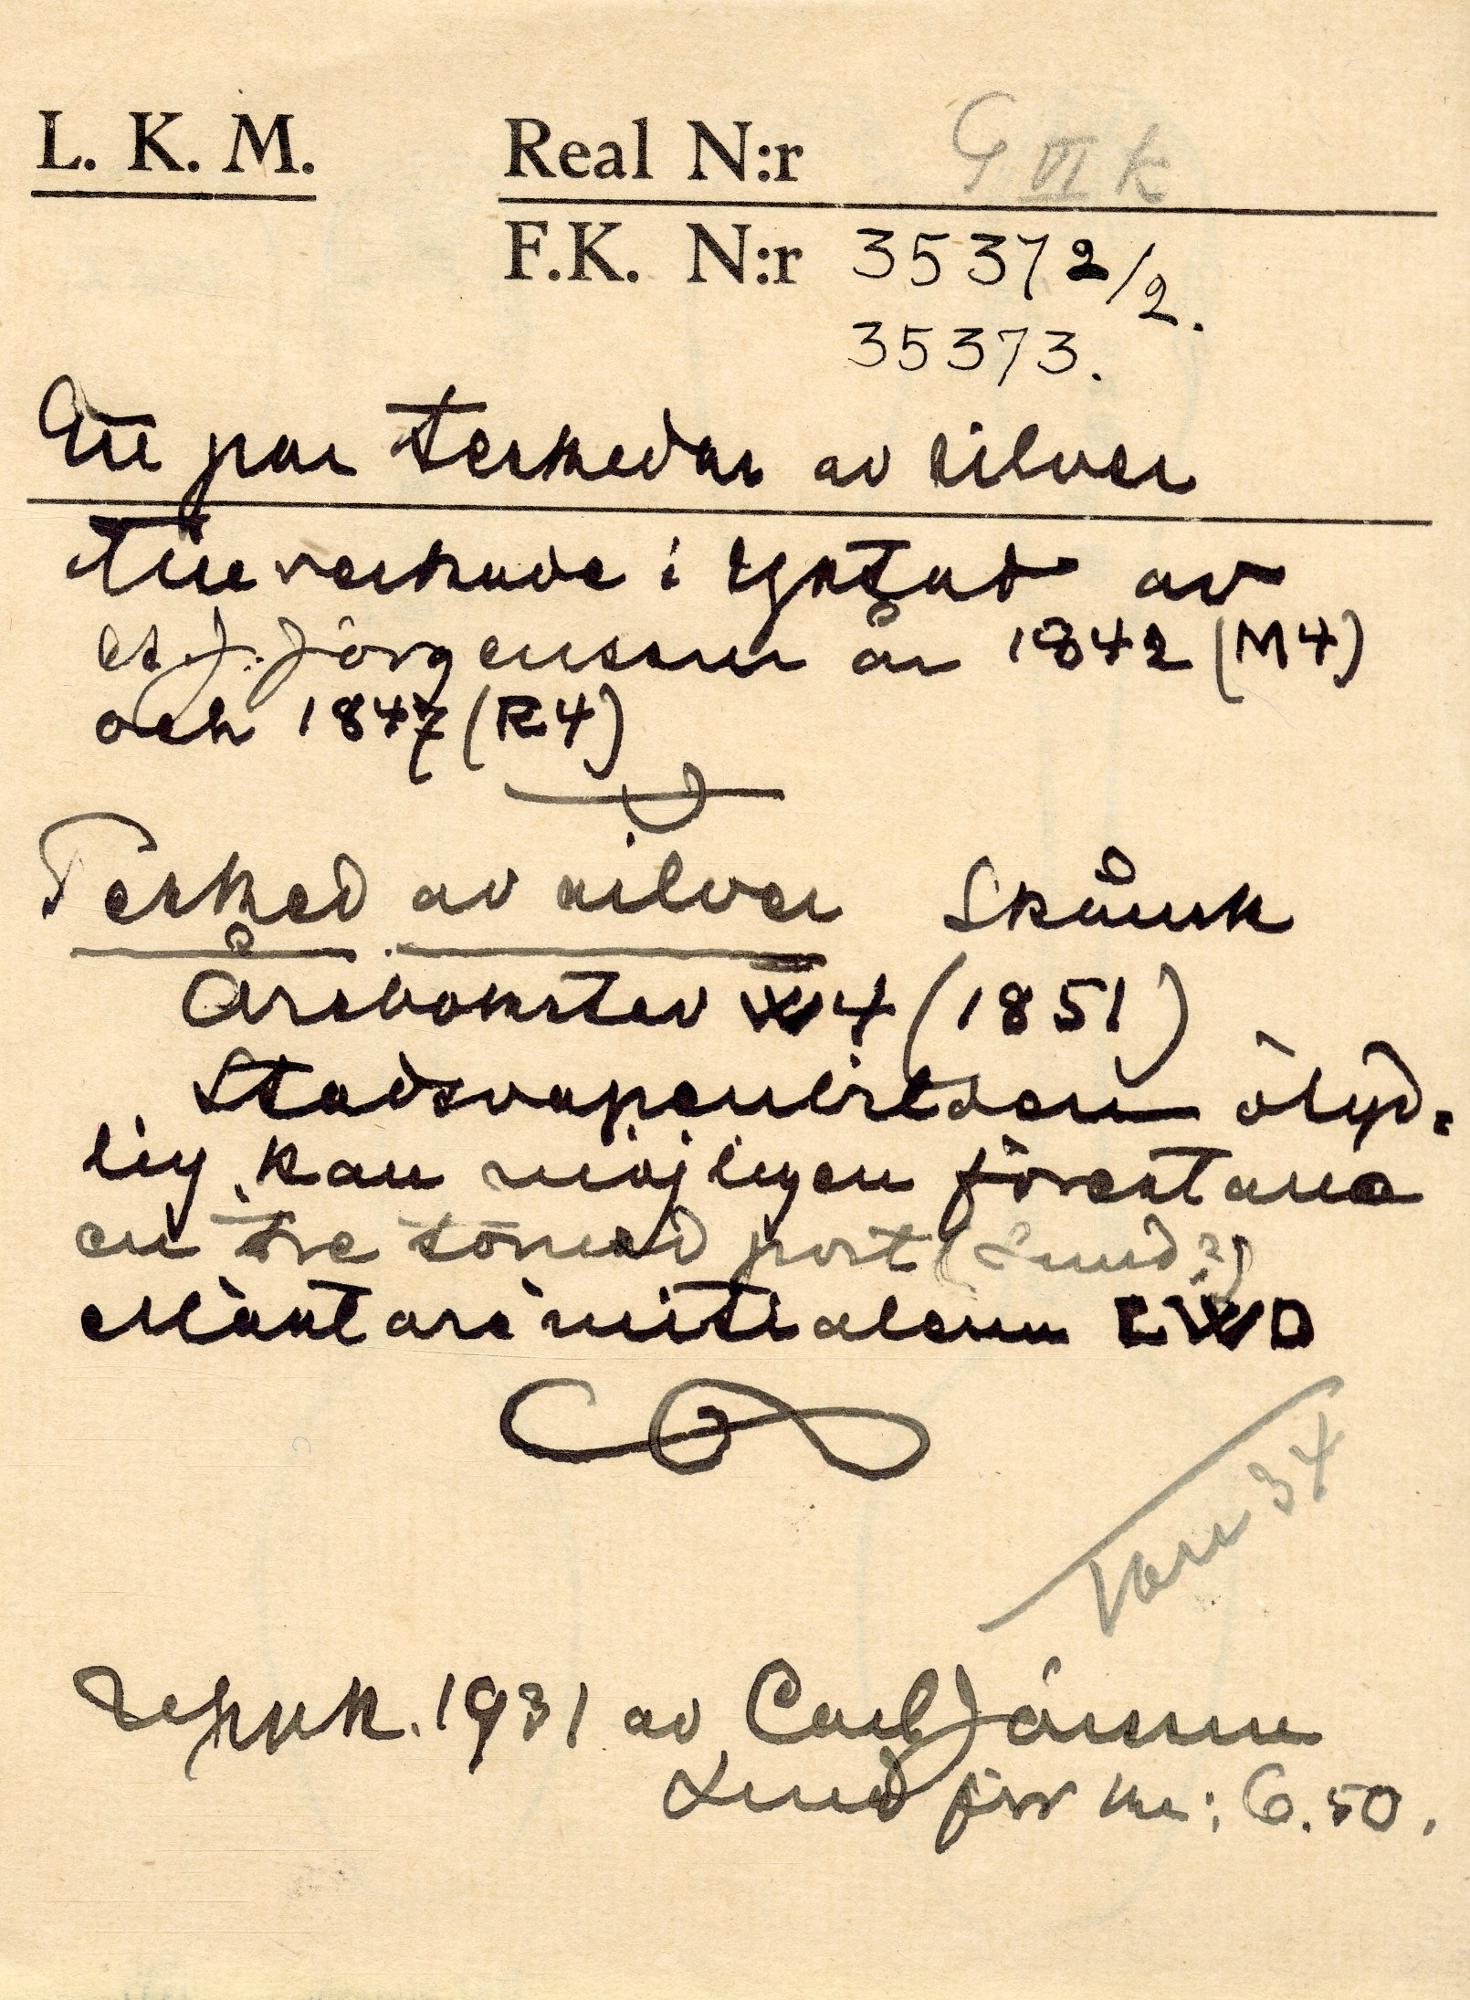 L. K. M.
Real N:r G VI k
F.K. N:r 35372/2.
35373.
Ett par teskedar av silver
tillverkade i Ystad av
J. Jörgensson år 1842 (M4)
och 1847 (R4)
Tesked av silver Skånsk
Årsbokstav W4 (1851)
Stadsvapenbilden otyd-
lig, kan möjligen förestava
en tre tornad port (Lund?)
Mästareinitialerna EWD
Vann 34
inpuk. 1931 av Carl Jönsson
Lund för kr: 6.50.